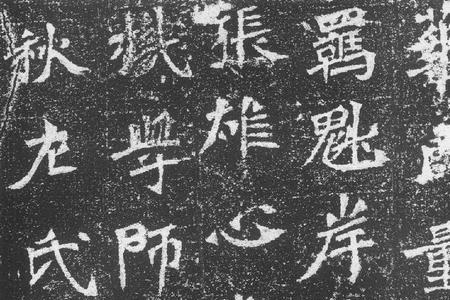 量
羈魁岸
張雄心
學師
秋左氏